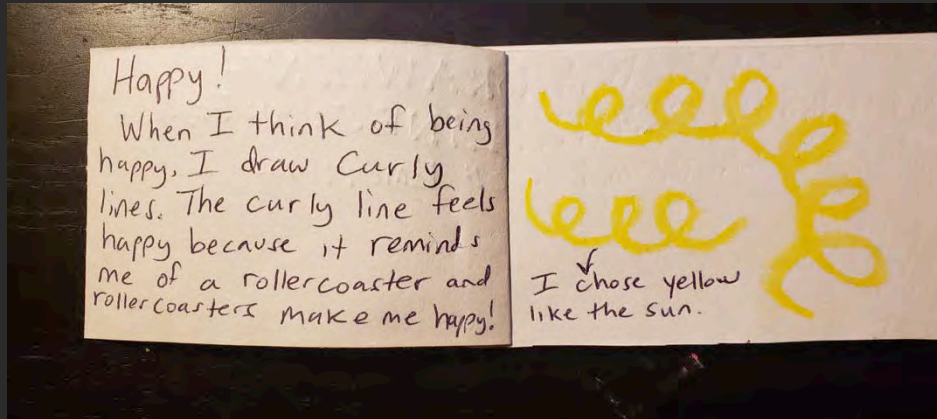 Happy!
When I think of being
happy, I draw Curly
lines. The curly line feels
happy because it reminds
me of a rollercoaster and
rollercoasters make me happy!
I chose yellow
like the sun.